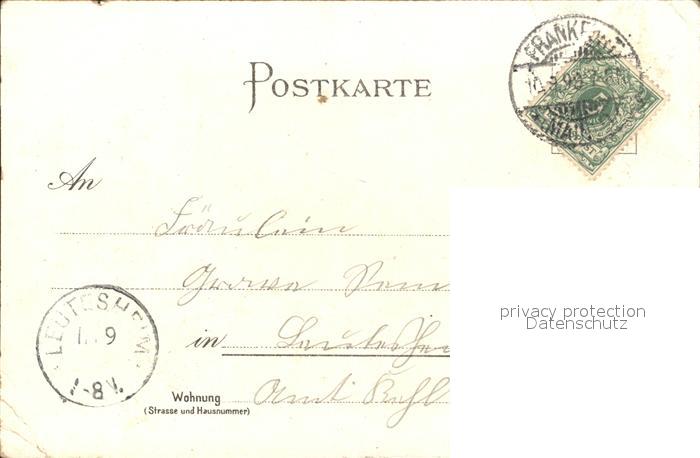 POSTKARTE
FRANKFURT
MAIN
An
Fräulein
in Leutesheim
LEUTESHEIM
9
7-8V.
Wohnung
(Strasse und Hausnummer)
Amt Kehl
privacy protection
Datenschutz